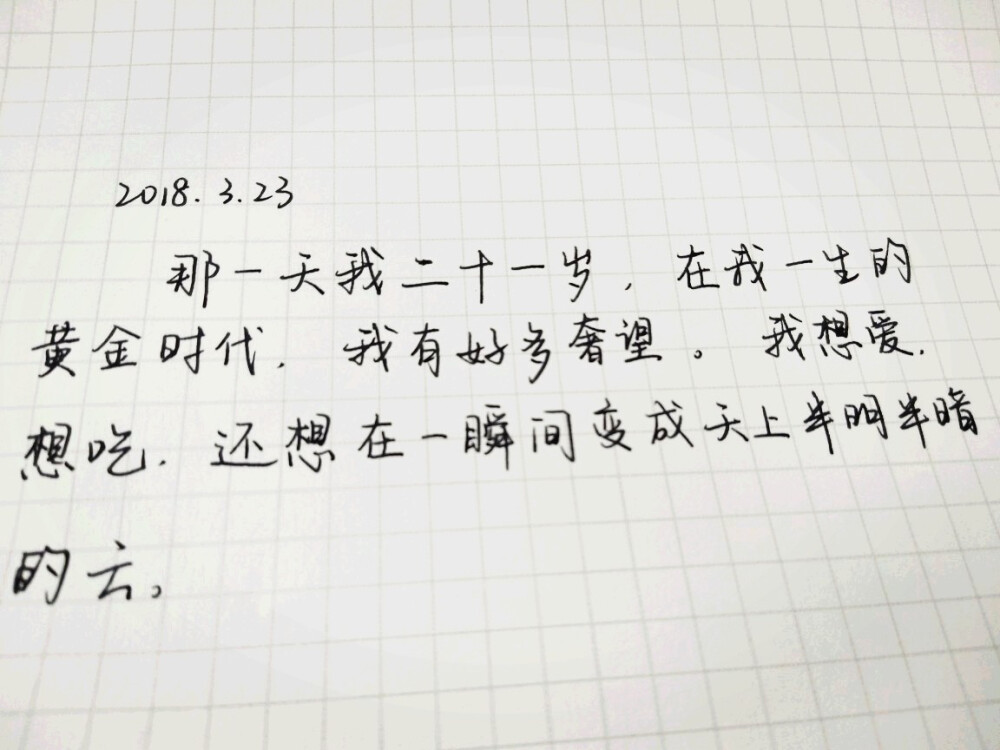 2018.3.23
那一天我二十一岁，在我一生的
黄金时代，我有好多奢望。我想爱，
想吃，还想在一瞬间变成天上半明半暗
的云。